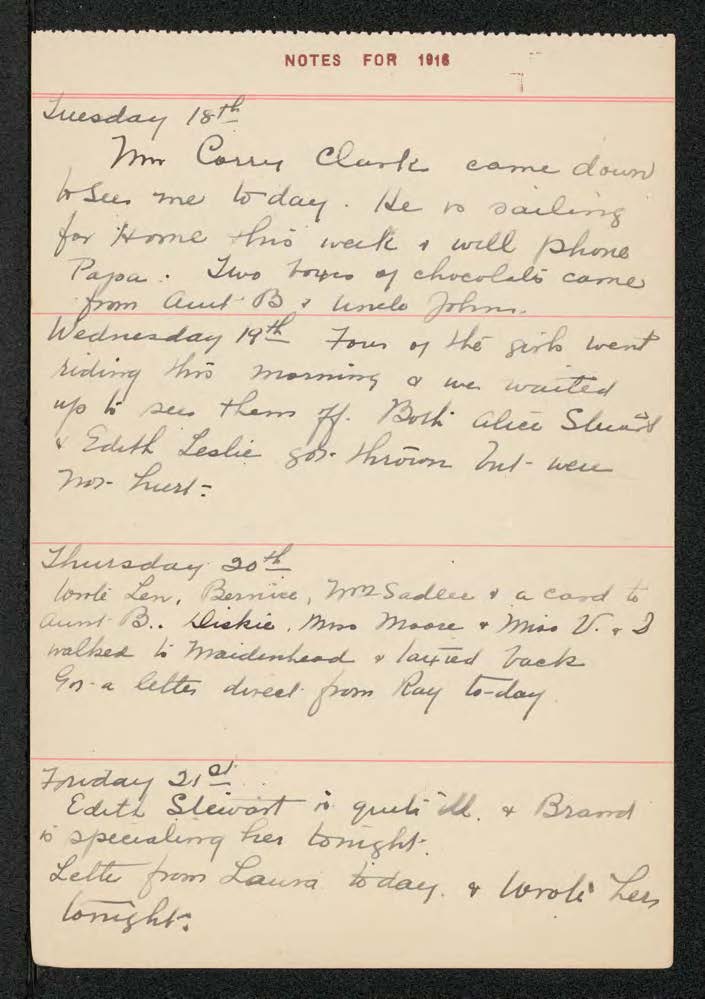 NOTES FOR 1916
Tuesday 18th
Mr Corry Clark came down
to see me to day. He is sailing
for Home this week & will phone
Papa. Two boxes of chocolates came
from Aunt B & Uncle John.
Wednesday 19th Four of the girls went
riding this morning & we waited
up to see them off. Both Alice Stuart
& Edith Leslie got thrown but were
not hurt.
Thursday 20th
Wrote Len, Bernice, Mrs Sadler & a card to
Aunt B.. Miss Moore & Miss V. & I
walked to Maidenhead & taxied back
Got a letter direct from Ray to-day
Friday 21st
Edith Stewart is quite ill. & Brand
is specialing her tonight.
Letter from Laura today. & wrote her
tonight.